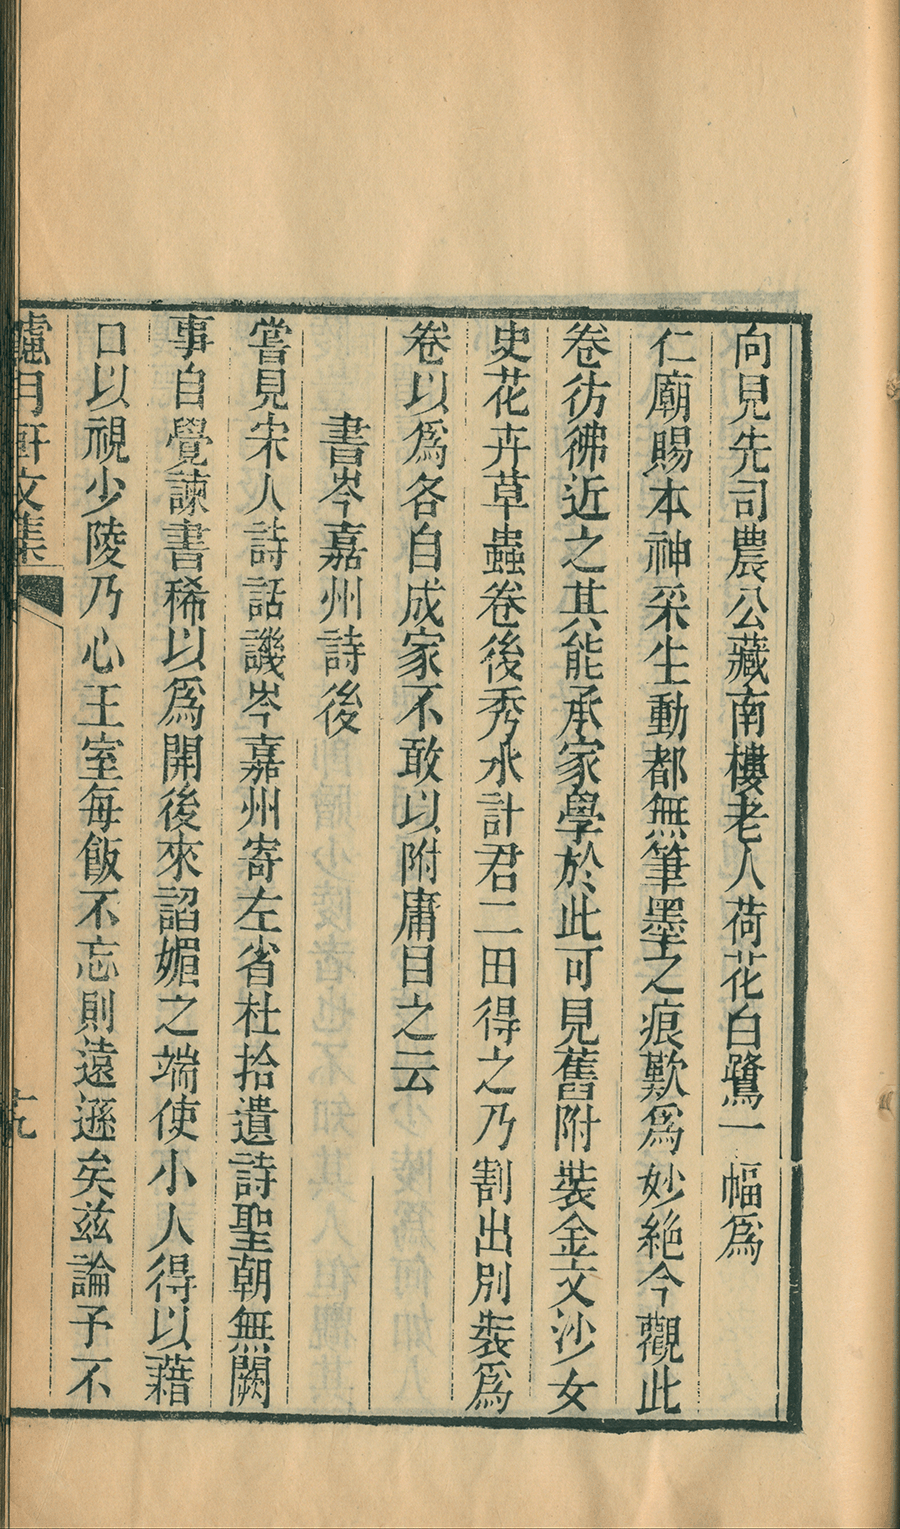 向見先司農公藏南樓老人荷花白鷺一幅爲
仁廟賜本神采生動都無筆墨之痕歎爲妙絶今觀此
卷彷彿近之其能承家學於此可見舊附裝金文沙女
史花卉草蟲卷後秀水計君二田得之乃割出別裝爲
卷以爲各自成家不敢以附庸目之云
書岑嘉州詩後
嘗見宋人詩話譏岑嘉州寄左省杜拾遺詩聖朝無闕
事自覺諫書稀以爲開後來諂媚之端使小人得以藉
口以視少陵乃心王室每飯不忘則遠遜矣兹論予不
月軒文集
十九